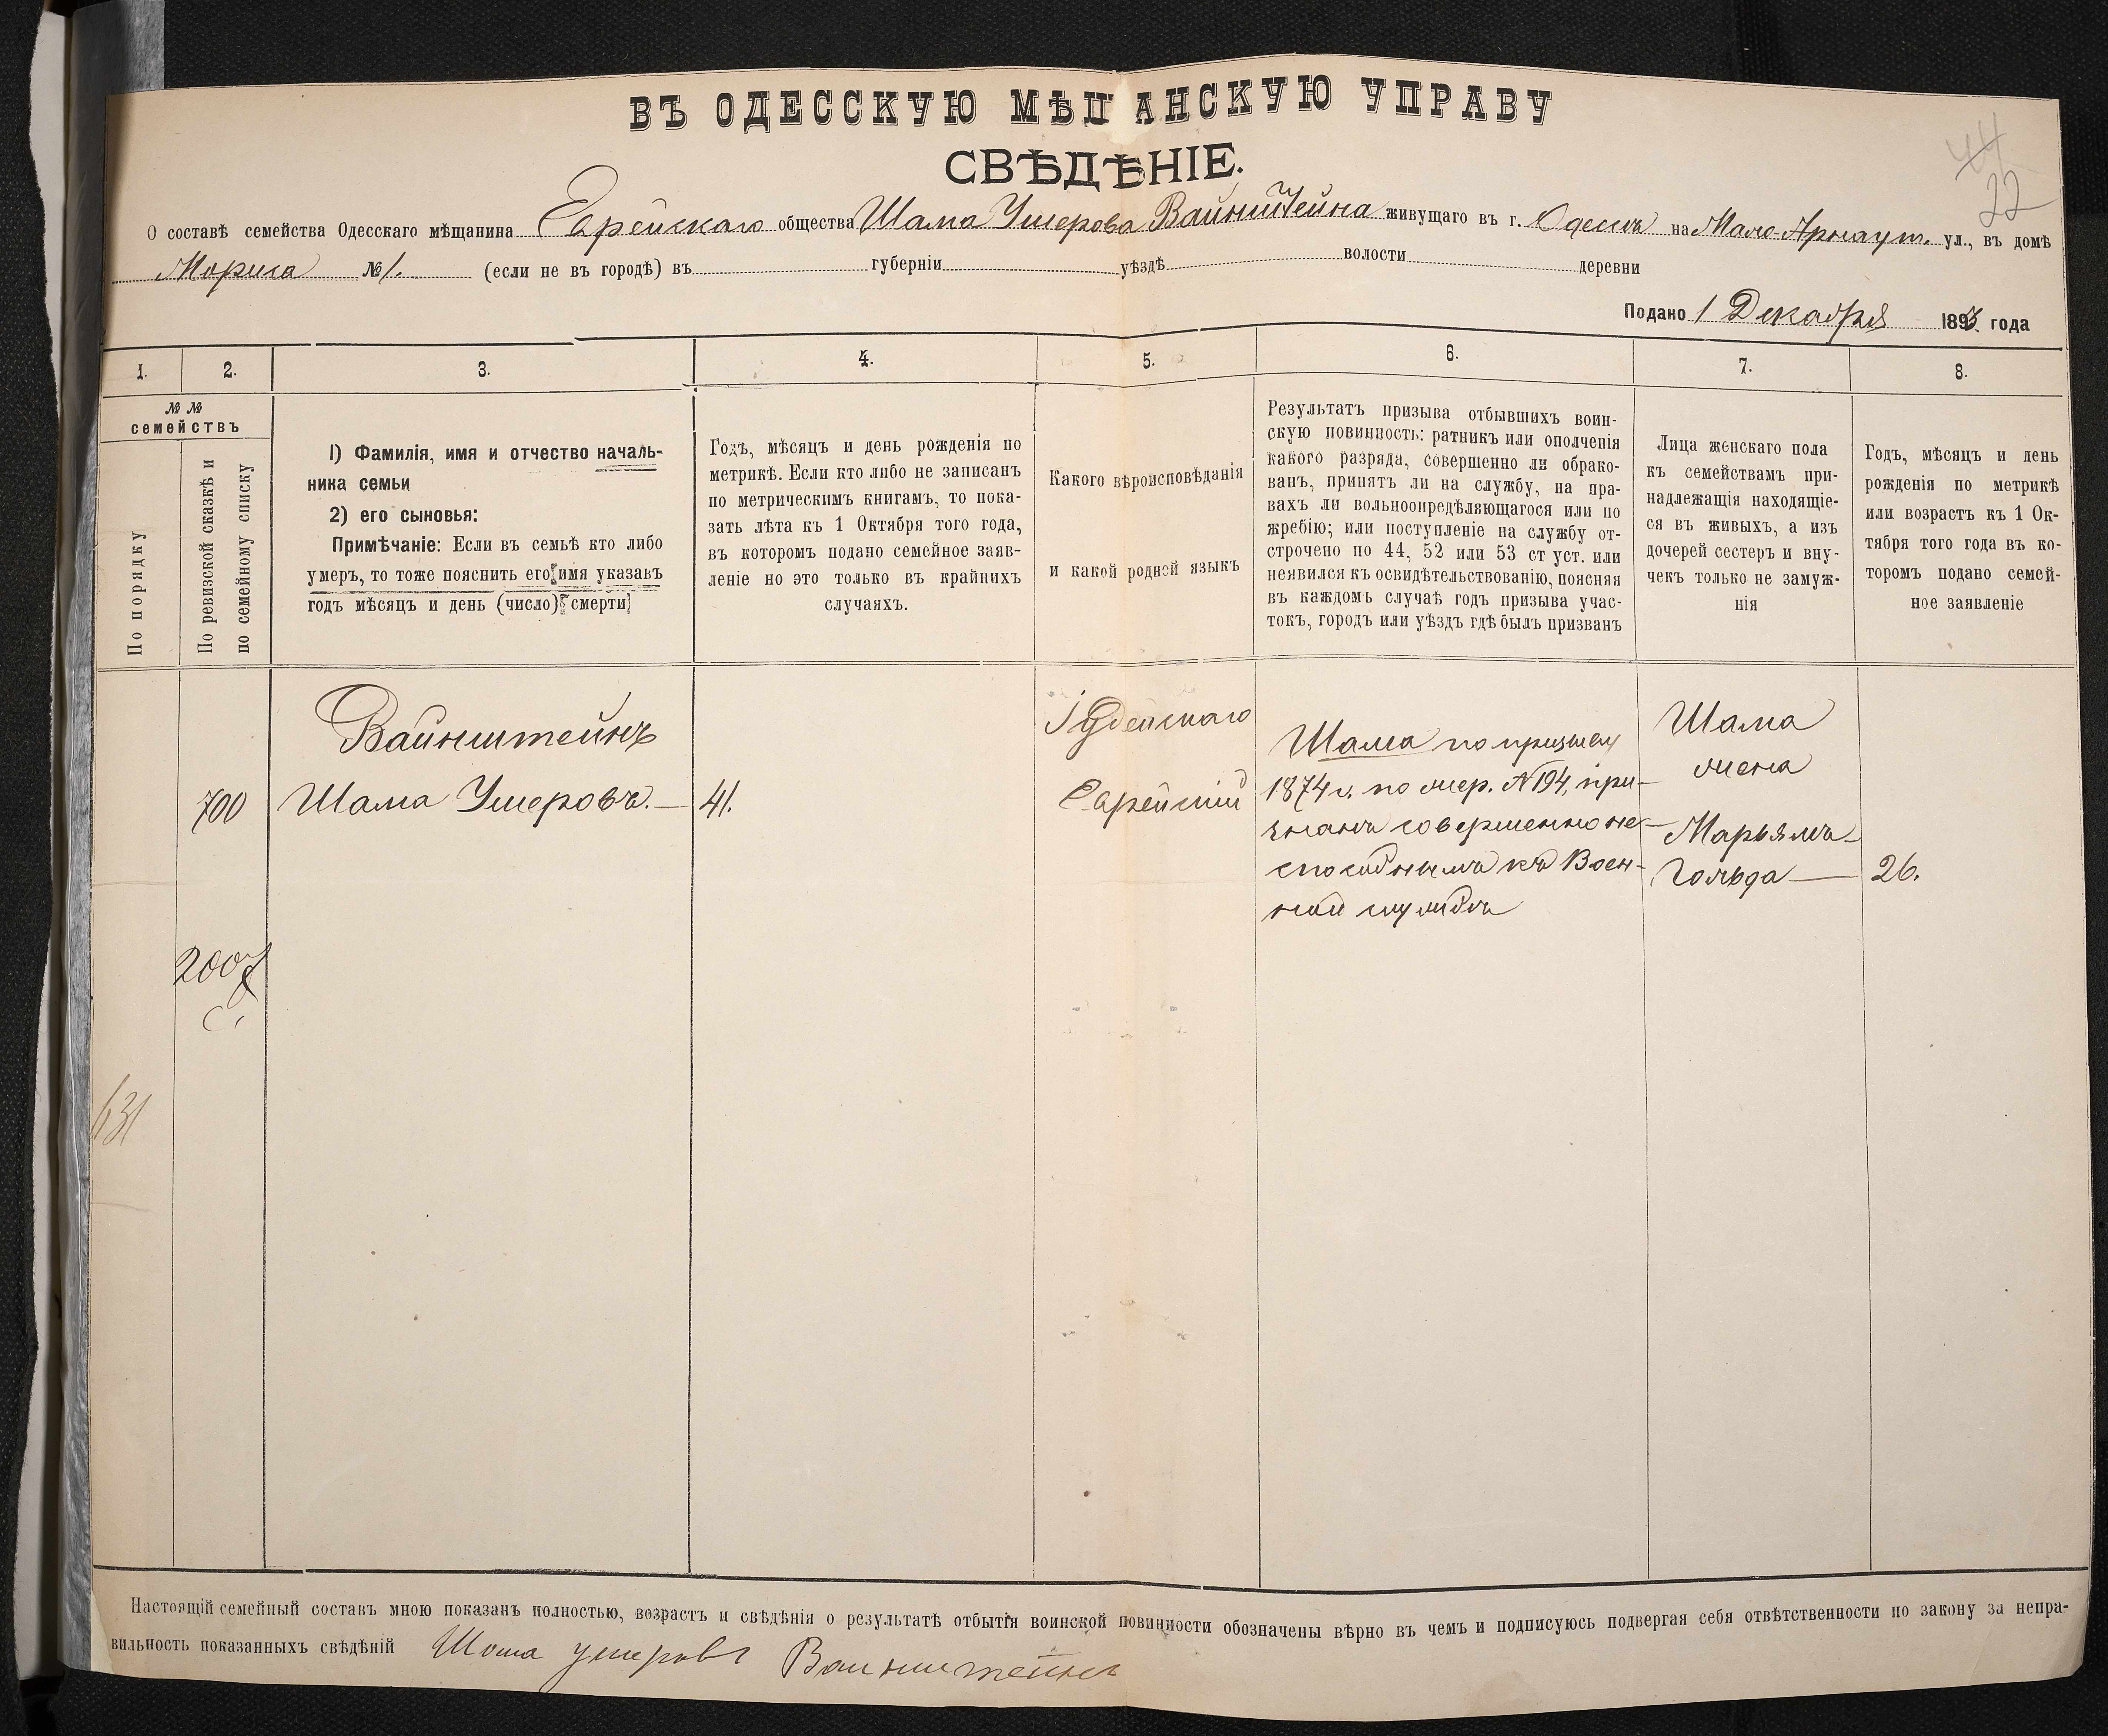 ВЪ ОДЕССКУЮ МѢЩАНСКУЮ УПРАВУ
СВѢДѢНІЕ.
44
22
О составѣ семейства Одесскаго мѣщанина Еврейскаго общества Шама Умерова Вайнштейна живущаго въ г. Одессѣ на Мало-Арнаут. ул., въ домѣ
№ 1. (если не въ городѣ) въ губерніи уѣздѣ волости деревни
Подано 1 Декабря 1893 года
1. 2. 3. 4. 5. 6. 7. 8.
№ №
семействъ
По порядку
По ревизской сказкѣ и
по семейному списку
1) Фамилія, имя и отчество началь-
ника семьи
2) его сыновья:
Примѣчаніе: Если въ семьѣ кто либо
умеръ, то тоже пояснить его имя указавъ
годъ мѣсяцъ и день (число) смерти
Годъ, мѣсяцъ и день рожденія по
метрикѣ. Если кто либо не записанъ
по метрическимъ книгамъ, то пока-
зать лѣта къ 1 Октября того года,
въ котором подано семейное заяв-
леніе но это только въ крайнихъ
случаяхъ.
Какого вѣроисповѣданія
и какой родной языкъ
Результатъ призыва отбывшихъ воин-
скую повинность: ратникъ или ополченія
какого разряда, совершенно ли обрако-
ванъ, принятъ ли на службу, на пра-
вахъ ли вольноопредѣляющагося или по
жребію; или поступленіе на службу от-
строчено по 44, 52 или 53 ст уст. или
неявился къ освидѣтельствованію, поясняя
въ каждомъ случаѣ годъ призыва учас-
токъ, городъ или уѣздъ гдѣ былъ призванъ
Лица женскаго пола
къ семействамъ при-
надлежащія находящіе-
ся въ живыхъ, а изъ
дочерей сестеръ и вну-
чекъ только не замуж-
нія
Годъ, мѣсяцъ и день
рожденія по метрикѣ
или возрастъ къ 1 Ок-
тября того года въ ко-
торомъ подано семей-
ное заявленіе
700
2007
631
Вайнштейнъ
Шама Умеровъ.
41.
Іудейскаго
Еврейскій
Шама по призыву
1874 г. по жер. № 194, при-
знанъ совершенно не-
способнымъ къ Воен-
ной службѣ
Шама
жена
Марьямъ-
Гольда
26.
Настоящій семейный составъ мною показанъ полностью, возрастъ и свѣдѣнія о результатѣ отбытія воинской повинности обозначены вѣрно въ чемъ и подписуюсь подвергая себя отвѣтственности по закону за непра-
вильность показанныхъ свѣдѣній Шома умеровъ Ваинштейнъ